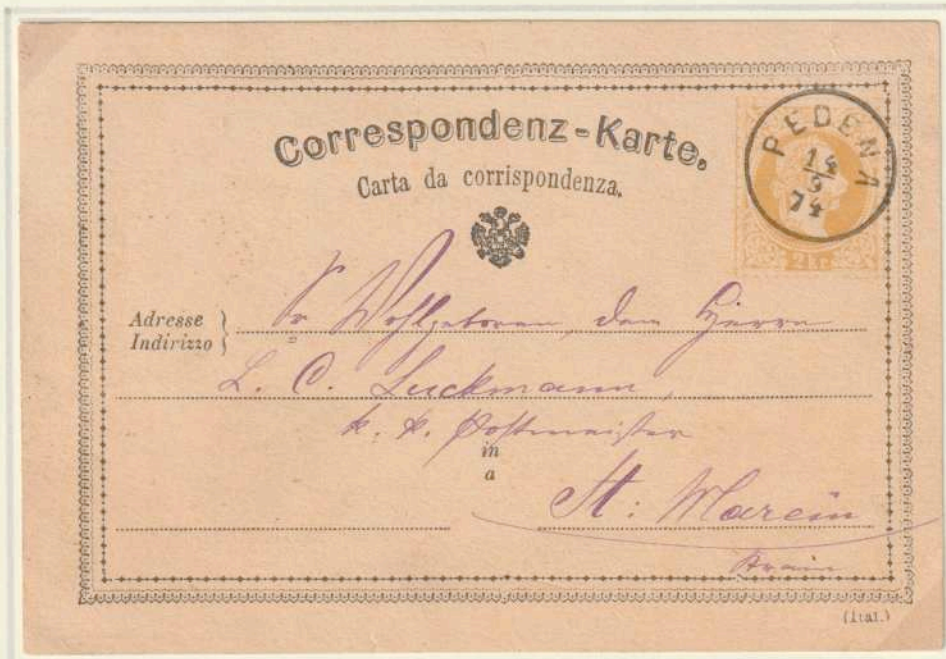 Correspondenz-Karte.
Carta da corrispondenza.
PEDENA
14
74
2 kr.
Adresse
Indirizzo
Sr Wohlgeboren, dem Herrn
L. C. Luckmann,
k. k. Postmeister
in
a
St: Marein
Krain
(Ital.)